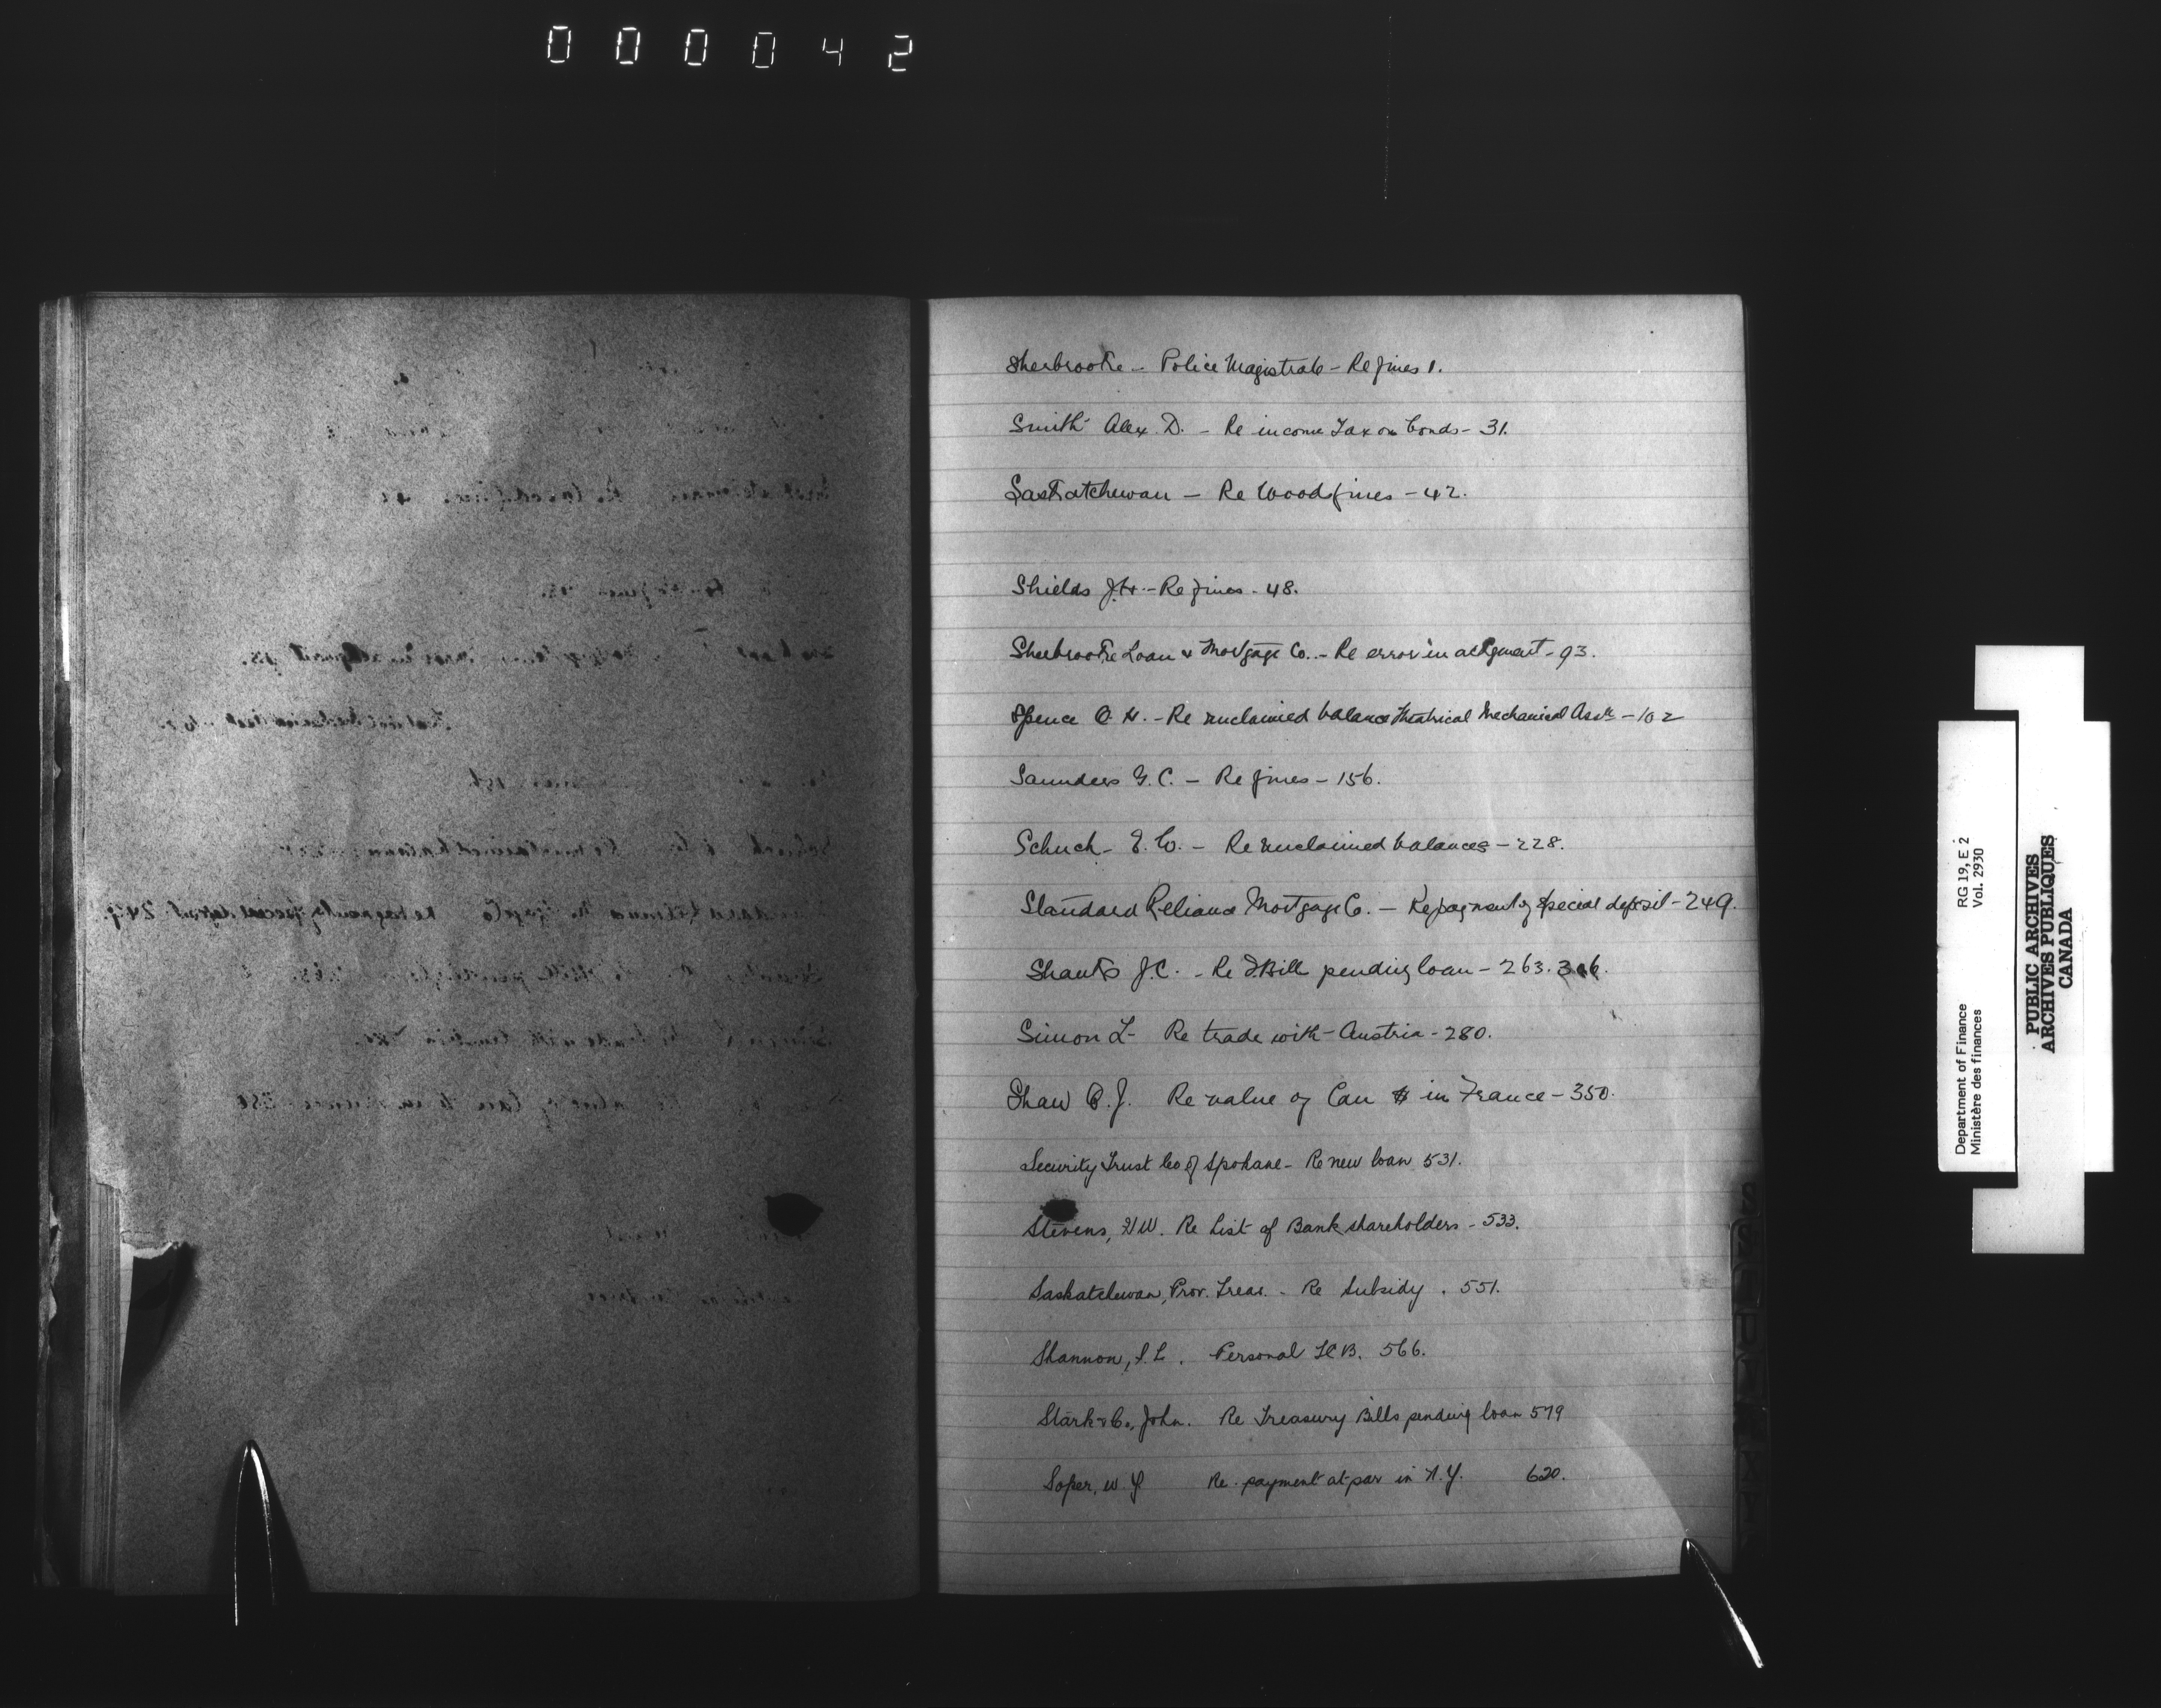 000042
Sherbrooke - Police Magistrate - Re fines 1.
Smith Alex. D. - Re income Tax on bonds - 31.
Saskatchewan - Re Wood fines - 42.
Shields J.H. - Re fines - 48.
Sherbrooke Loan & Mortgage Co. - Re error in - 93.
Spence O. H. - Re unclaimed balance Theatrical Mechanical Assn - 102
Saunders G. C. - Re fines - 156.
Schuch - E. W. - Re unclaimed balances - 228.
Standard Reliance Mortgage Co. - Re payment of special deposit - 249.
J.C. - Re T.Bill pending loan - 263. 306.
Simon L - Re trade with - Austria - 280.
Shaw J. Re value of Can $ in France - 350.
Security Trust Co of Spokane - Re new loan 531.
Stevens, HW. Re List of Bank shareholders - 533.
Saskatchewan, Prov. Treas. - Re Subsidy . 551.
Shannon, S. L. Personal 566.
Stark & Co., John. Re Treasury Bills pending loan 579
Soper, W Y Re payment at par in N.Y. 620.
Department of Finance
Ministère des finances
RG 19, E 2
Vol. 2930
PUBLIC ARCHIVES
ARCHIVES PUBLIQUES
CANADA